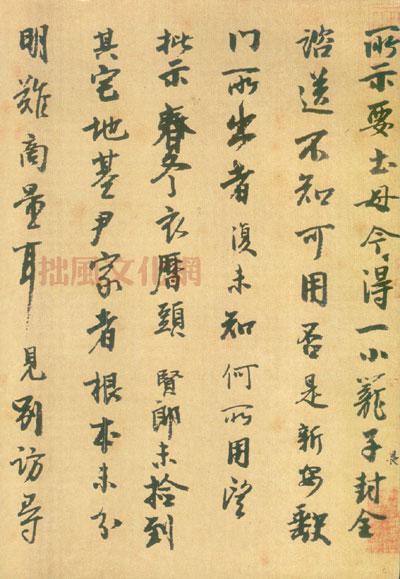 所示要土母今得一小籠子封全
諮送不知可用否是新安缺
門所出者復未知何所用望
批示春冬衣曆頭賢郎未撿到
其宅地基尹家者根本未分
明難商量耳見別訪尋
拙風文化網